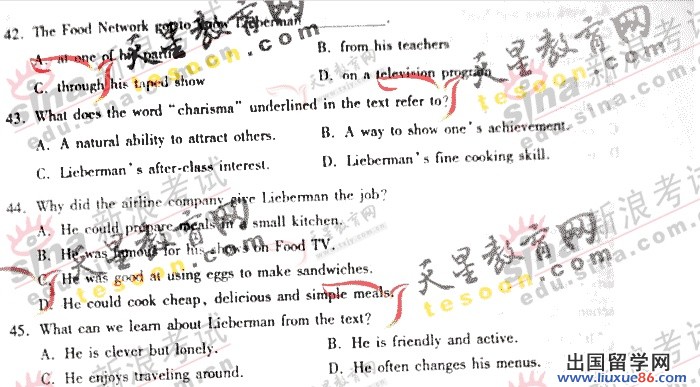 42. The Food Network got to know Lieberman ________.
A. at one of his parties    B. from his teachers
C. through his taped show    D. on a television program
43. What does the word “charisma” underlined in the text refer to?
A. A natural ability to attract others.    B. A way to show one's achievement.
C. Lieberman's after-class interest.    D. Lieberman's fine cooking skill.
44. Why did the airline company give Lieberman the job?
A. He could prepare meals in a small kitchen.
B. He was famous for his shows on Food TV.
C. He was good at using eggs to make sandwiches.
D. He could cook cheap, delicious and simple meals.
45. What can we learn about Lieberman from the text?
A. He is clever but lonely.    B. He is friendly and active.
C. He enjoys traveling around.    D. He often changes his menus.
天星教育网
tesoon.com
新浪考试
edu.sina.com.cn
出国留学网
www.liuxue86.com